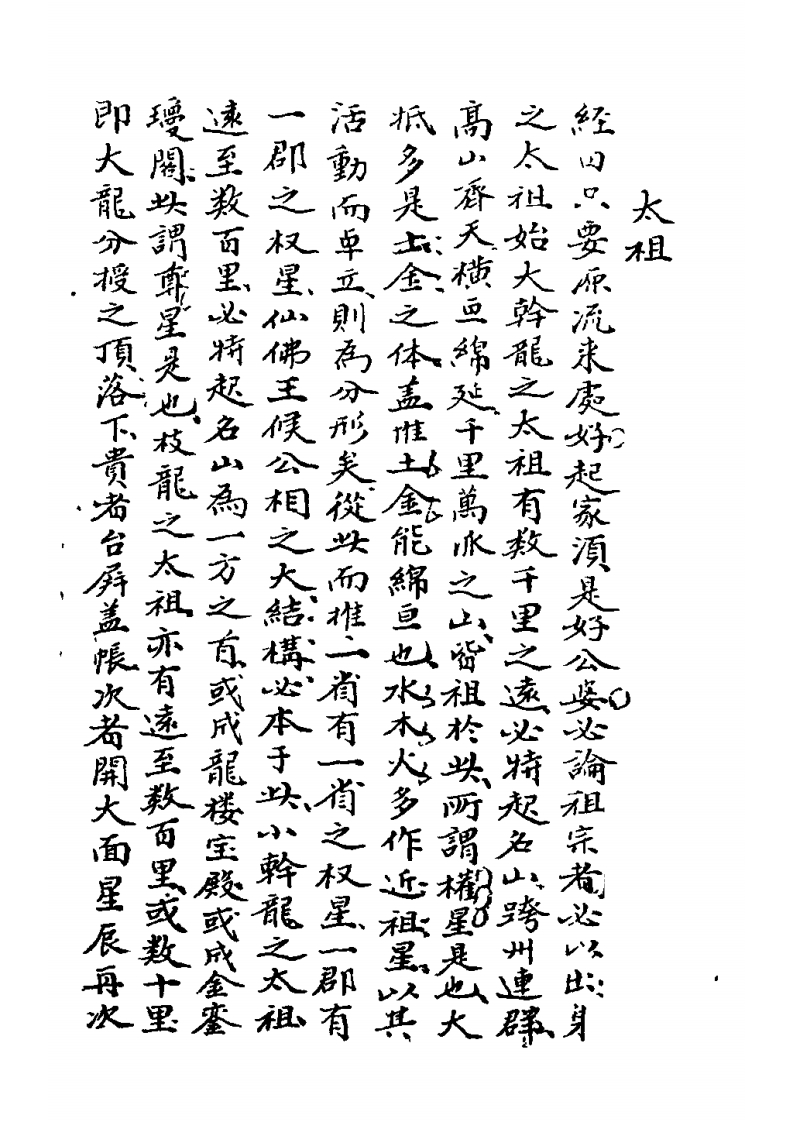 太祖
経曰只要原流来處好起家須是好公婆必論祖宗者必以出身
之太祖始大幹龍之太祖有数千里之遠必特起名山跨州連群
高山齊天橫亘綿延千里萬派之山皆祖於此所謂權星是也大
抵多是土金之体盖惟土金能綿亘也水木火多作近祖星以其
活動而卓立則為分形矣從此而推一省有一省之权星一郡有
一郡之权星仙佛王候公相之大結構必本于此小幹龍之太祖
遠至数百里必特起名山為一方之首或成龍楼宝殿或成金銮
瓊閣此謂尊星是也枝龍之太祖亦有遠至数百里或数十里
即大龍分授之頂落下貴者台屏盖帳次者開大面星辰再次